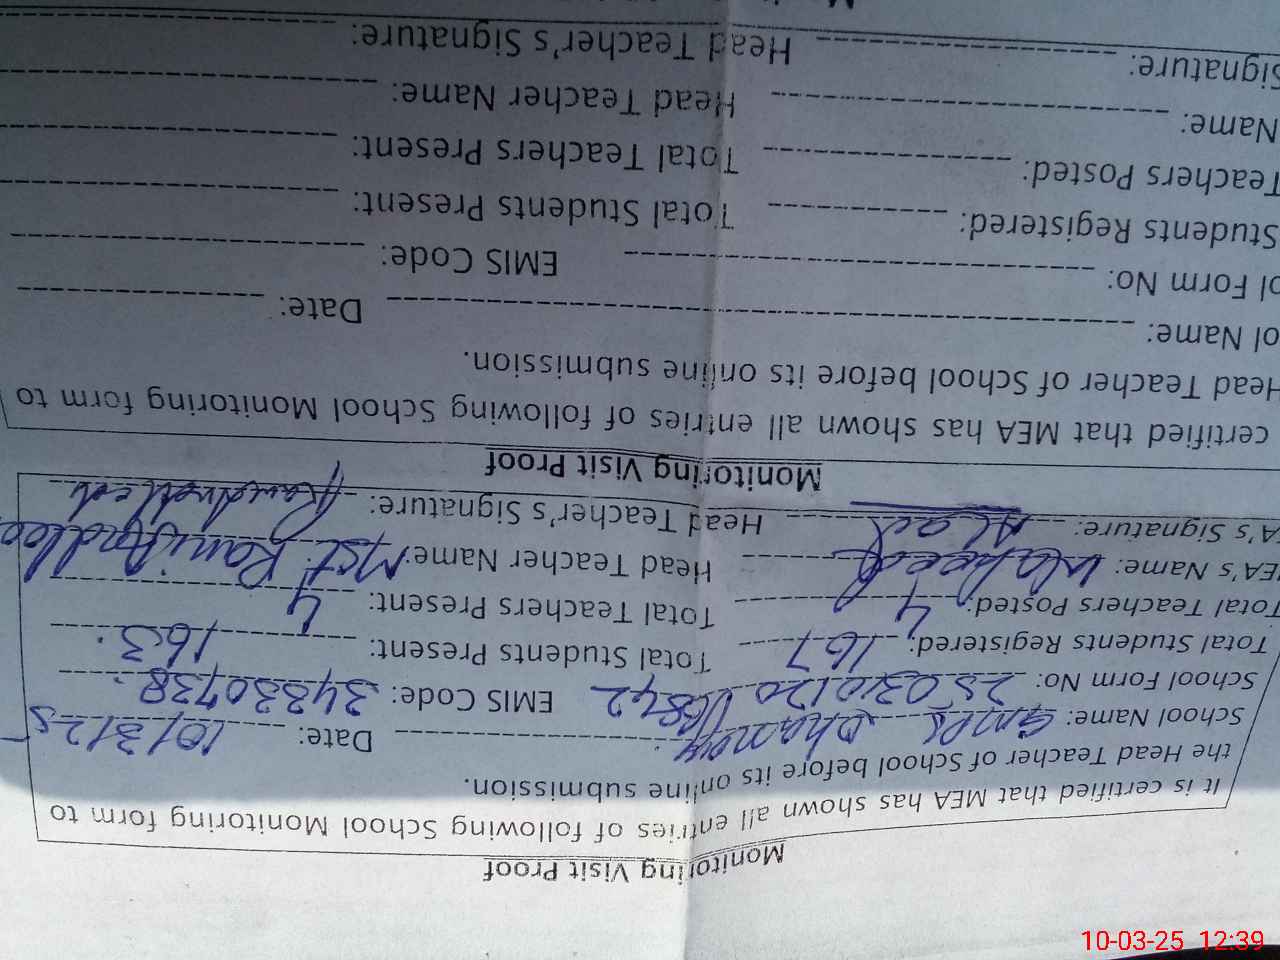 Monitoring Visit Proof
It is certified that MEA has shown all entries of following School Monitoring form to
the Head Teacher of School before its online submission.
School Name: GMPS Date: 10/3/25
School Form No: EMIS Code: 34330738
Total Students Registered: 167 Total Students Present: 163
Total Teachers Posted: 4 Total Teachers Present: 4
MEA's Name: Waheed Head Teacher Name: Mst. Rani
EA's Signature: Head Teacher's Signature:
Monitoring Visit Proof
certified that MEA has shown all entries of following School Monitoring form to
Head Teacher of School before its online submission.
ol Name: Date:
ol Form No: EMIS Code:
Students Registered: Total Students Present:
Teachers Posted: Total Teachers Present:
Name: Head Teacher Name:
Signature: Head Teacher's Signature:
10-03-25 12:39